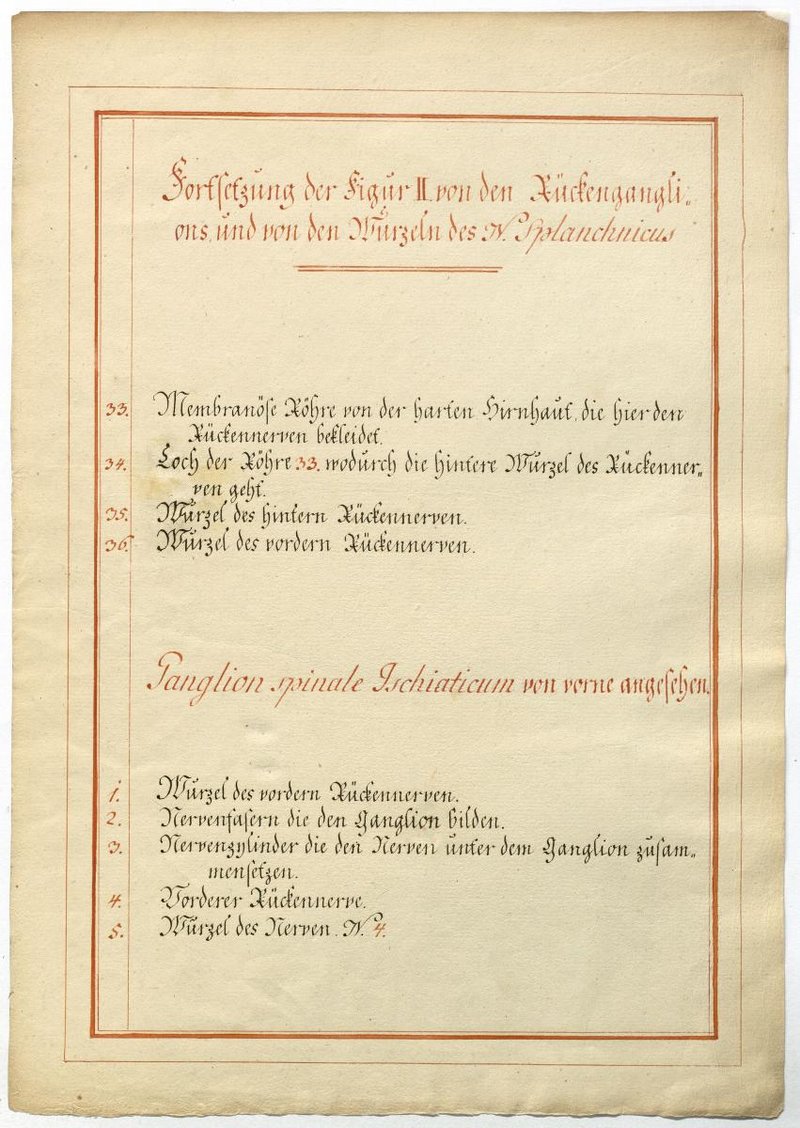 Fortsetzung der Figur II. von den Rückengangli-
ons, und von den Wurzeln des N. Splanchnicus
33. Membranöse Röhre von der harten Hirnhaut, die hier den
Rückennerven bekleidet.
34. Loch der Röhre 33. wodurch die hintere Wurzel des Rückenner-
ven geht.
35. Wurzel des hintern Rückennerven.
36. Wurzel des vordern Rückennerven.
Ganglion spinale Ischiaticum von vorne angesehen.
1. Wurzel des vordern Rückennerven.
2. Nervenfasern die den Ganglion bilden.
3. Nervenzylinder die den Nerven unter dem Ganglion zusam-
mensetzen.
4. Vorderer Rückennerve.
5. Wurzel des Nerven. N. 4.